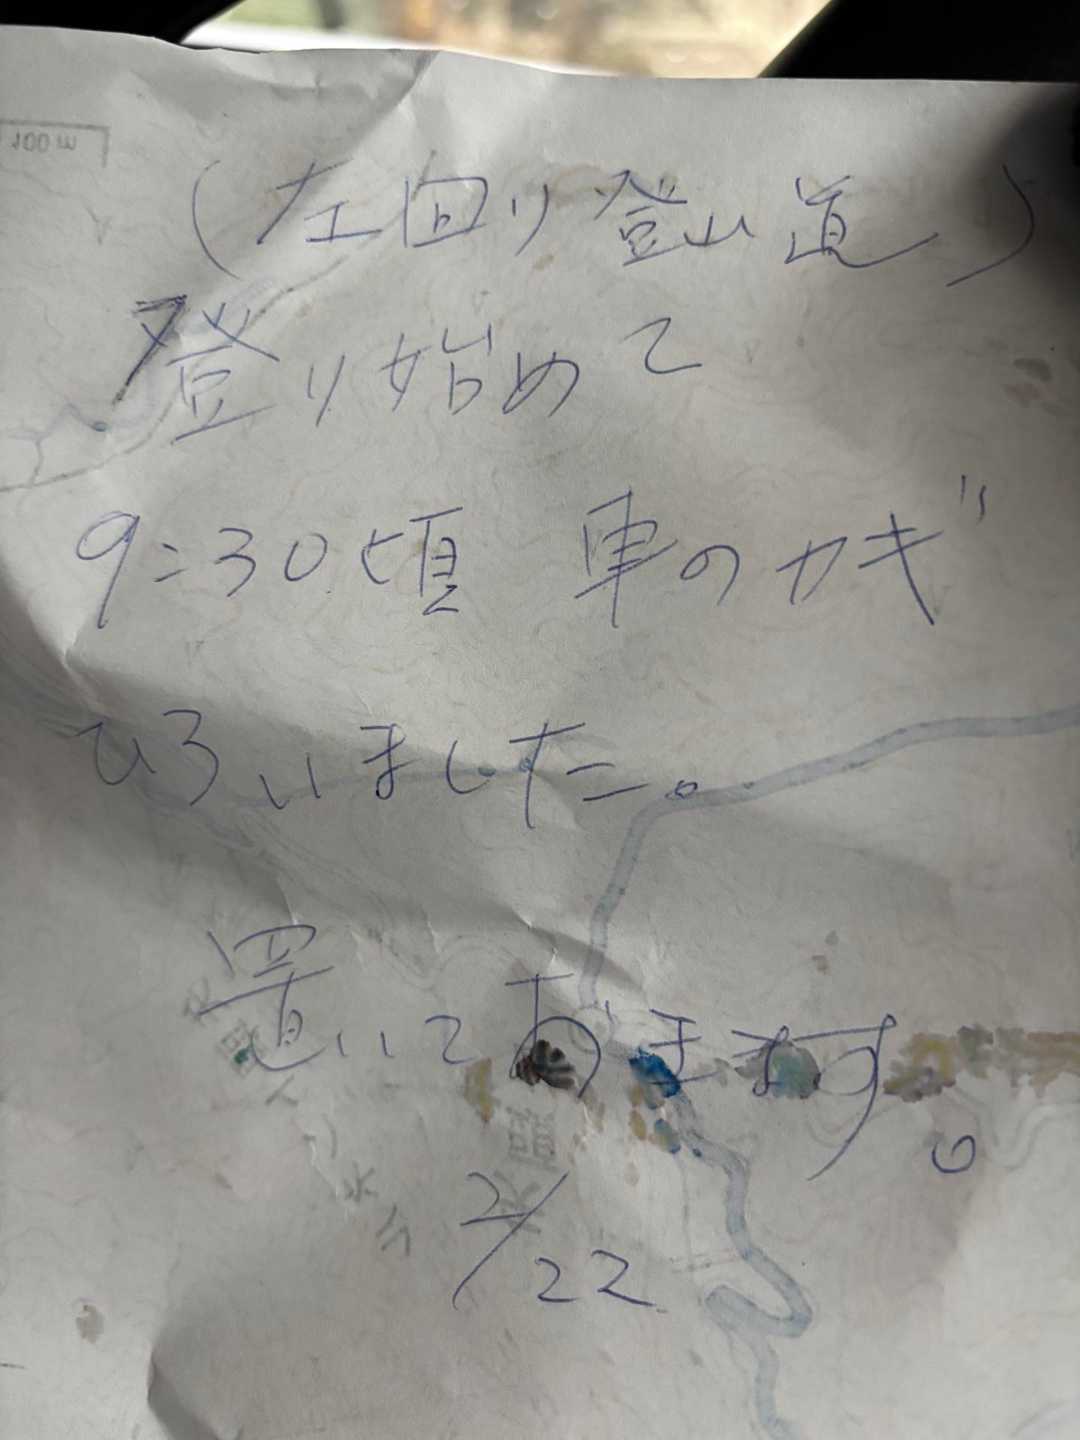 (左回り登山道)
登り始めて
9:30頃 車のカギ
ひろいました。
置いておきます。
2/22